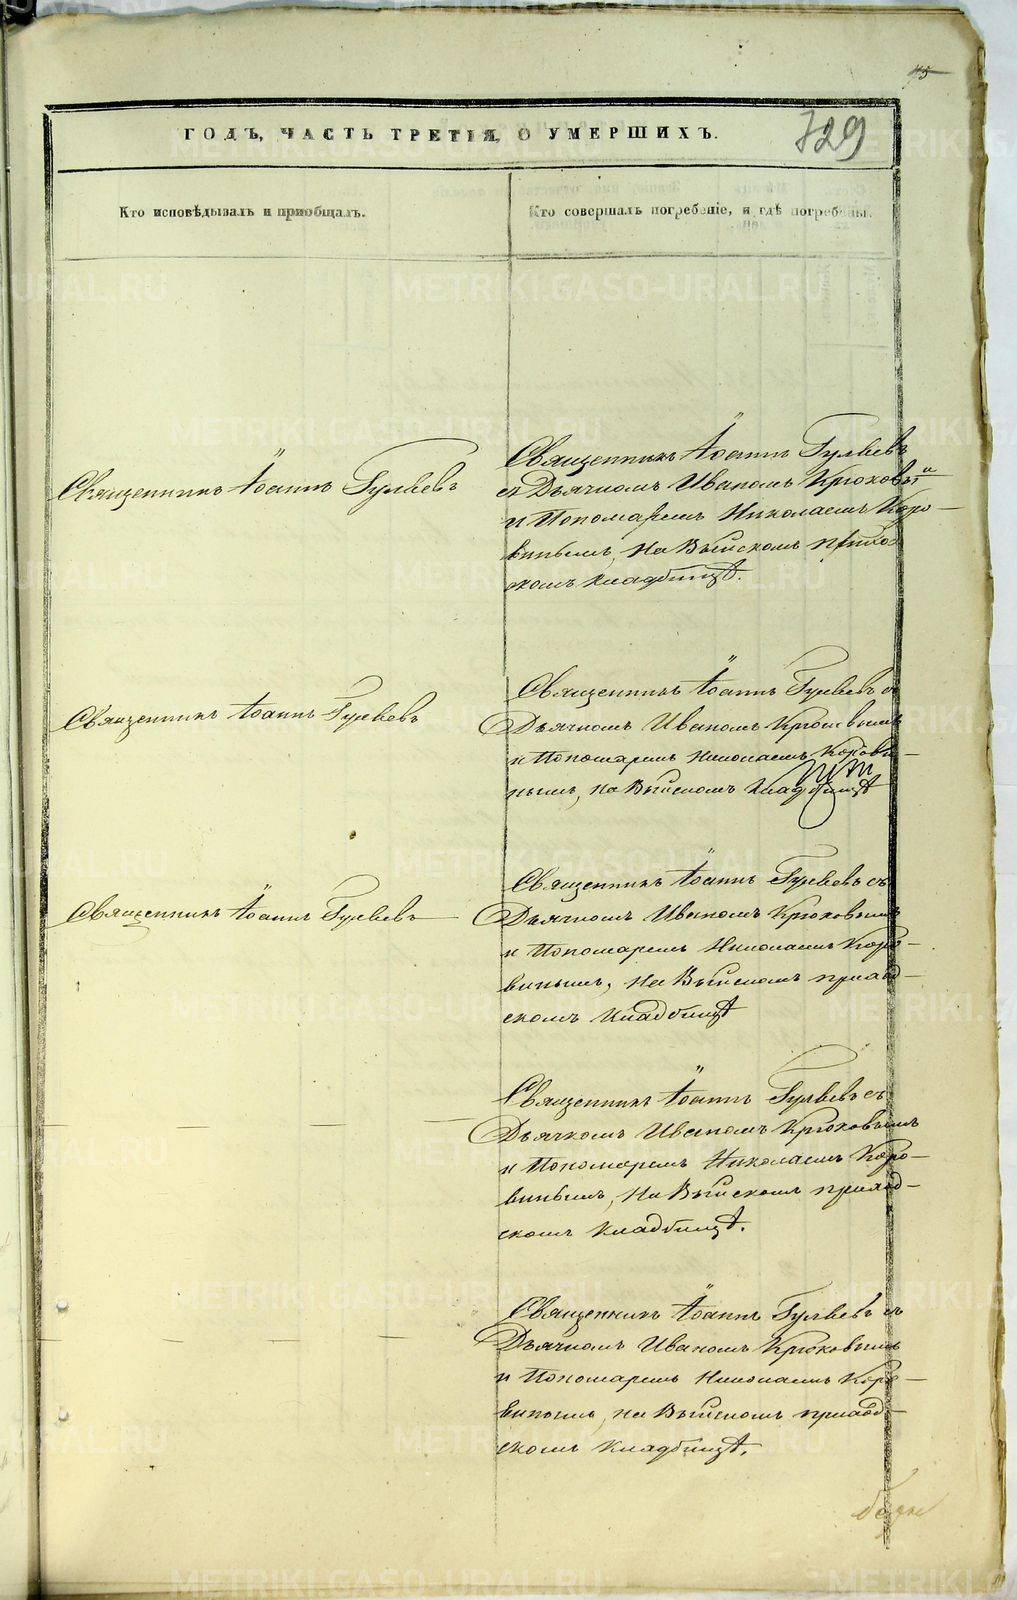 ГОДЪ, ЧАСТЬ ТРЕТІЯ, О УМЕРШИХЪ.
729
Кто исповѣдывалъ и приобщалъ.
Кто совершалъ погребеніе, и гдѣ погребены.
Священникъ Іоаннъ Гуляевъ
Священникъ Іоаннъ Гуляевъ
съ Дьячкомъ Иваномъ Крюковы
и Пономаремъ Николаемъ Коро-
винымъ, на Выйскомъ прихо
скомъ кладбищѣ.
Священникъ Іоаннъ Гуляевъ
Священникъ Іоаннъ Гуляевъ съ
Дьячкомъ Иваномъ Крюковымъ
и Пономаремъ Николаемъ Корови-
нымъ, на Выйскомъ кладбищѣ
Священникъ Іоаннъ Гуляевъ
Священникъ Іоаннъ Гуляевъ съ
Дьячкомъ Иваномъ Крюковымъ
и Пономаремъ Николаемъ Коро-
винымъ, на Выйскомъ приход-
скомъ кладбищѣ
Священникъ Іоаннъ Гуляевъ съ
Дьячкомъ Иваномъ Крюковымъ
и Пономаремъ Николаемъ Коро-
винымъ, на Выйскомъ приход-
скомъ кладбищѣ.
Священникъ Іоаннъ Гуляевъ съ
Дьячкомъ Иваномъ Крюковымъ
и Пономаремъ Николаемъ Коро-
винымъ, на Выйскомъ приход-
скомъ кладбищѣ.
METRIKI.GASO-URAL.RU